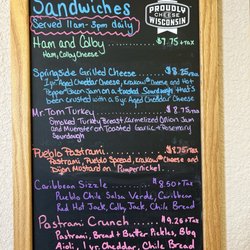 Sandwiches
Served 11am-3pm daily
PROUDLY
CHEESE
WISCONSIN
Ham and Colby $7.75 + TAX
Ham, Colby Cheese
Springside Grilled Cheese
1 yr Aged Cheddar Cheese, Krakow Cheese and Hot
Pepper Onion Jam on a toasted Sourdough that's
been crusted with a 5yr Aged Cheddar Cheese
Mr. Tom Turkey
Smoked Turkey Breast, Carmelized Onion Jam
and Muenster on Toasted Garlic + Rosemary
Sourdough
Pueblo Pastrami
Pastrami, Pueblo Spread, Krakow Cheese and
Dijon Mustard on Pumpernickel
Caribbean Sizzle $8.60 + Tax
Pueblo Chile Salsa Verde, Caribbean
Red Hot Jack, Colby Jack, Chile Bread
Pastrami Crunch $9.26 + Tax
Pastrami, Bread + Butter Pickles, Bbq
Aioli, 1 yr. Cheddar, Chile Bread